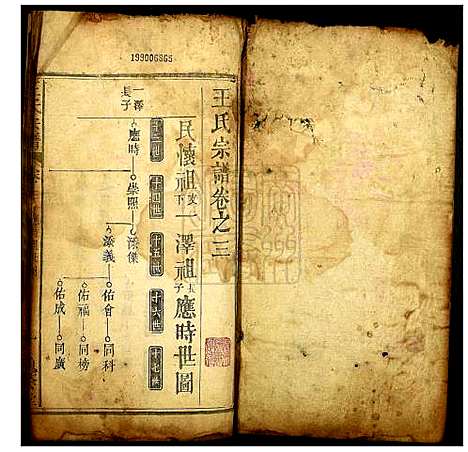 199006865
王氏宗譜卷之三
民懷祖支下一澤祖長子應時世圖
十三世 十四世 十五世 十六世 十七世
一澤長子
應時 崇熙 添傑
添義 佑會 同科
佑福 同榜
佑成 同廣